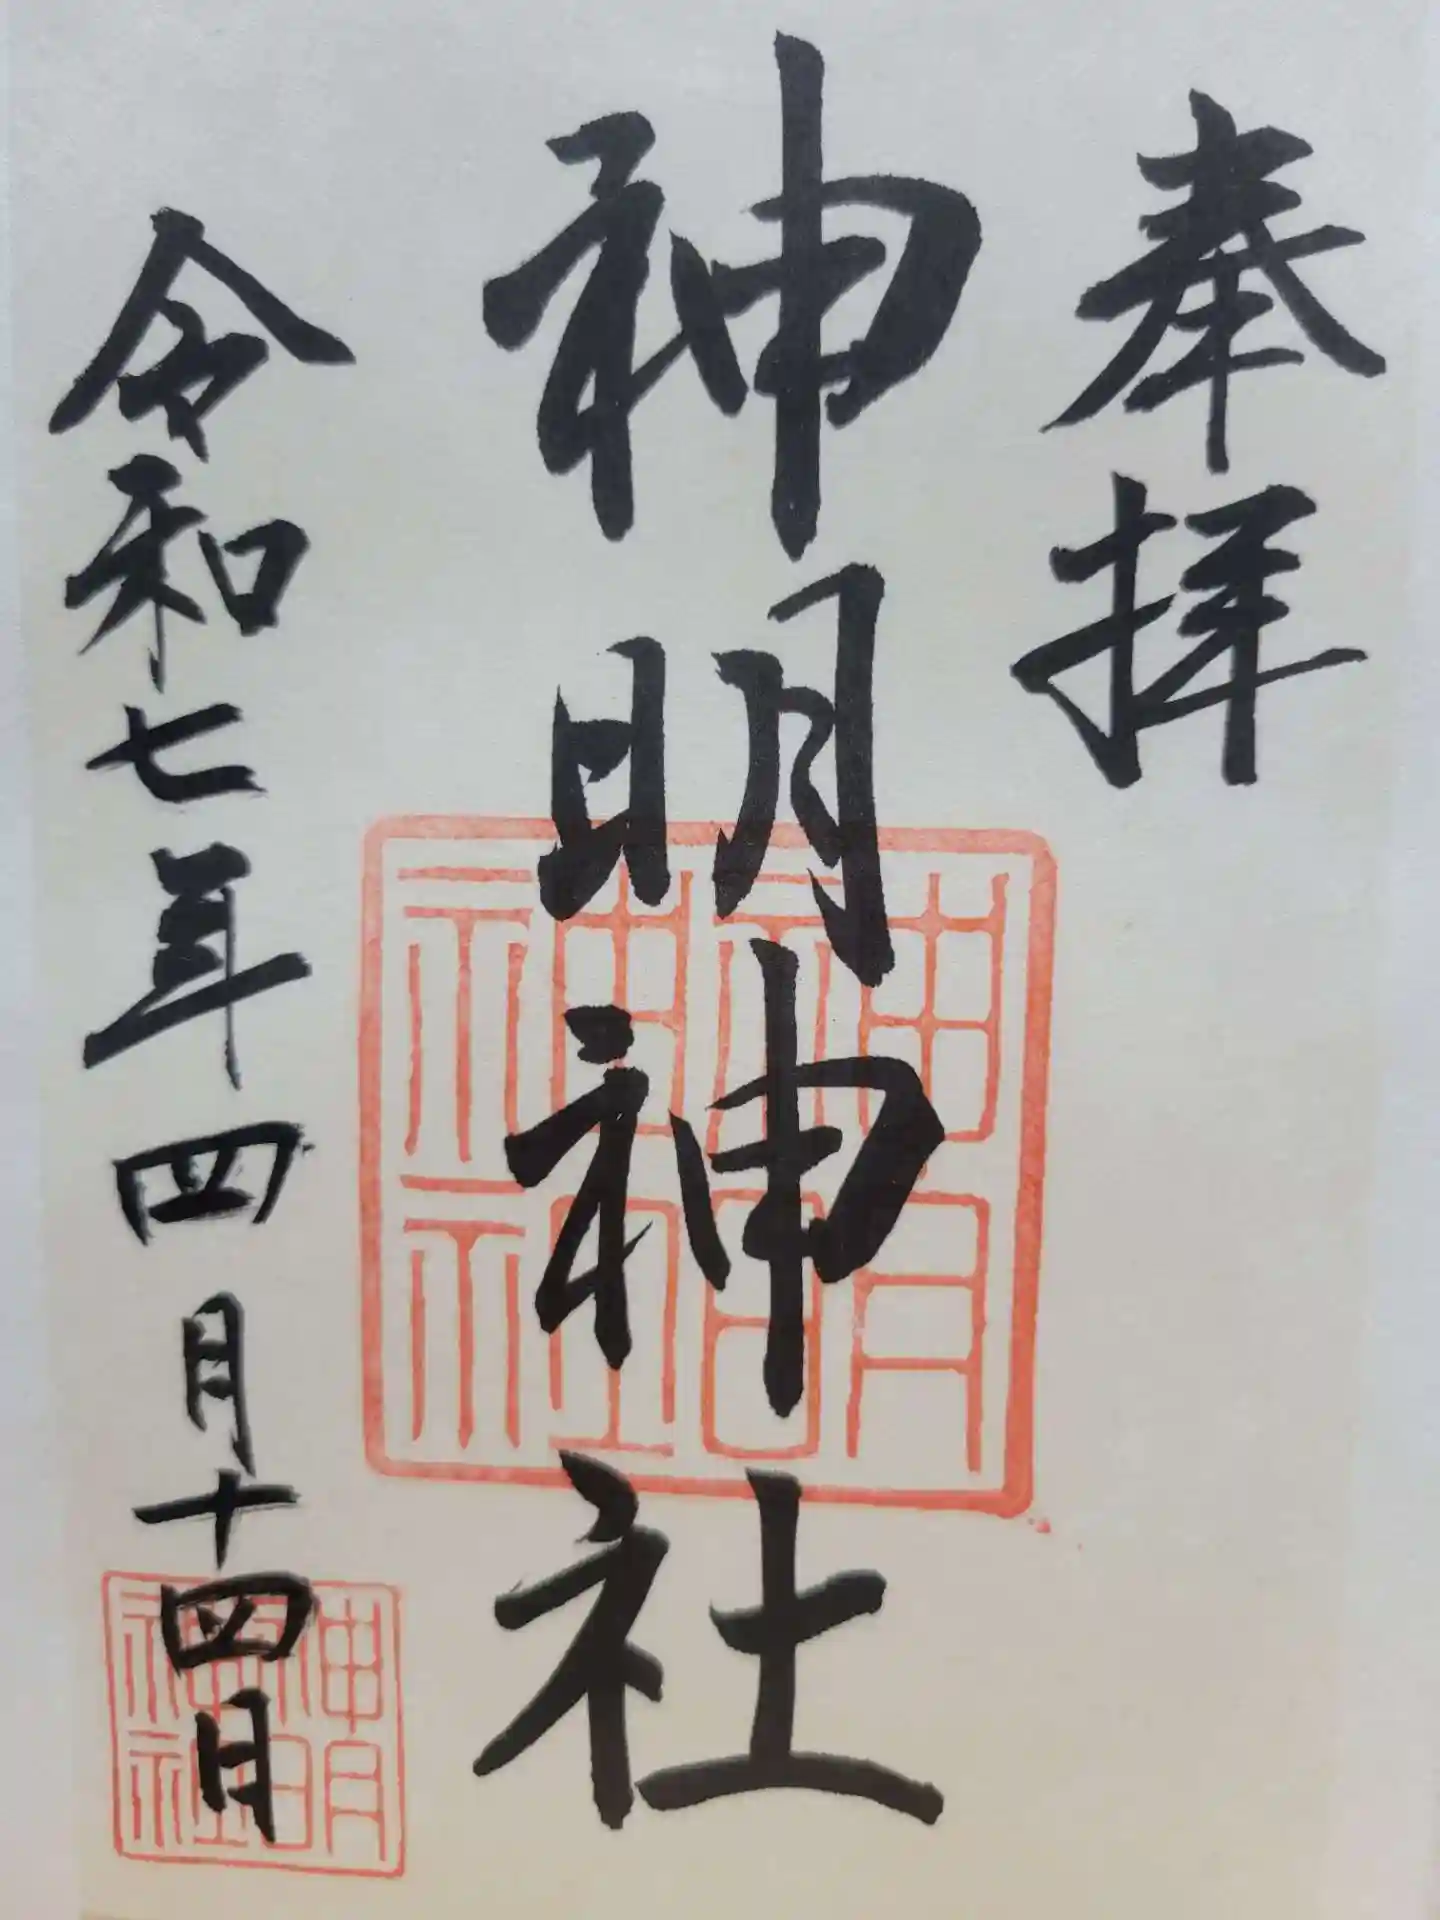 奉拝
神明神社
令和七年四月十四日
神明
神社
神明
神社